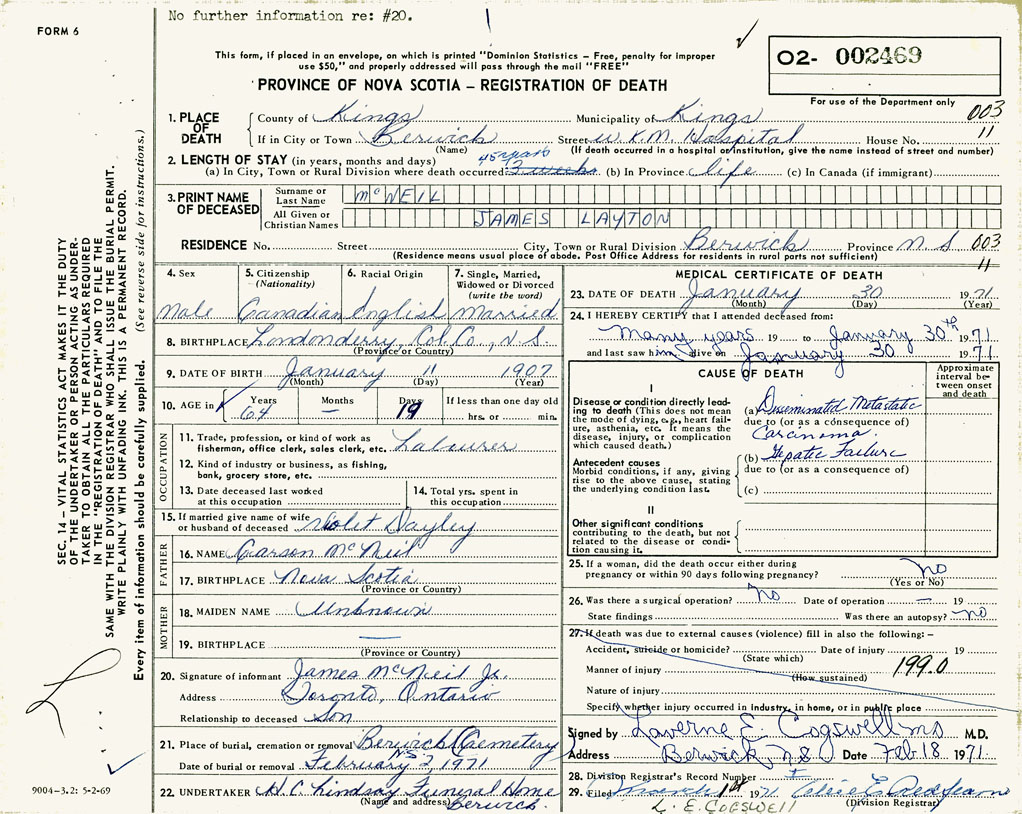 No further information re: #20.
FORM 6
This form, if placed in an envelope, on which is printed "Dominion Statistics – Free, penalty for improper
use $50," and properly addressed will pass through the mail "FREE"
O2- 002469
PROVINCE OF NOVA SCOTIA – REGISTRATION OF DEATH
For use of the Department only
003
11
1. PLACE OF DEATH
County of Kings Municipality of Kings
If in City or Town Berwick Street W. K. M. Hospital House No.
(Name) (If death occurred in a hospital or institution, give the name instead of street and number)
2. LENGTH OF STAY (in years, months and days)
45 years
(a) In City, Town or Rural Division where death occurred 3 weeks (b) In Province life (c) In Canada (if immigrant)
3. PRINT NAME OF DECEASED
Surname or Last Name McNEIL
All Given or Christian Names JAMES LAYTON
RESIDENCE No. Street City, Town or Rural Division Berwick Province N.S. 003
(Residence means usual place of abode. Post Office Address for residents in rural parts not sufficient)
11
4. Sex
Male
5. Citizenship (Nationality)
Canadian
6. Racial Origin
English
7. Single, Married, Widowed or Divorced (write the word)
Married
8. BIRTHPLACE Londonderry, Col. Co., N.S.
(Province or Country)
9. DATE OF BIRTH January 11 1907
(Month) (Day) (Year)
10. AGE in Years Months Days If less than one day old
64 – 19 hrs. or min.
OCCUPATION
11. Trade, profession, or kind of work as
fisherman, office clerk, sales clerk, etc. Labourer
12. Kind of industry or business, as fishing,
bank, grocery store, etc.
13. Date deceased last worked
at this occupation
14. Total yrs. spent in
this occupation
15. If married give name of wife
or husband of deceased Violet Dayley
FATHER
16. NAME Carson McNeil
17. BIRTHPLACE Nova Scotia
(Province or Country)
MOTHER
18. MAIDEN NAME Unknown
19. BIRTHPLACE —
(Province or Country)
20. Signature of informant James McNeil Jr.
Address Toronto, Ontario
Relationship to deceased Son
21. Place of burial, cremation or removal Berwick (Cemetery)
Date of burial or removal February 2, 1971
22. UNDERTAKER H. C. Lindsay Funeral Home
(Name and address) Berwick.
MEDICAL CERTIFICATE OF DEATH
23. DATE OF DEATH January 30 1971
(Month) (Day) (Year)
24. I HEREBY CERTIFY that I attended deceased from:
Many years 19 to January 30th 1971
and last saw him alive on January 30 1971
CAUSE OF DEATH
Approximate interval between onset and death
I
Disease or condition directly leading to death (This does not
mean the mode of dying, e.g., heart failure, asthenia, etc. It means the
disease, injury, or complication
which caused death.)
(a) Disseminated Metastatic
due to (or as a consequence of)
Carcinoma.
Antecedent causes
Morbid conditions, if any, giving
rise to the above cause, stating
the underlying condition last.
(b) Hepatic Failure
due to (or as a consequence of)
(c)
II
Other significant conditions
contributing to the death, but not
related to the disease or condition causing it.
25. If a woman, did the death occur either during
pregnancy or within 90 days following pregnancy? no
(Yes or No)
26. Was there a surgical operation? no Date of operation — 19
State findings Was there an autopsy? no
27. If death was due to external causes (violence) fill in also the following: –
Accident, suicide or homicide? Date of injury 19
(State which)
Manner of injury 199.0
(How sustained)
Nature of injury
Specify whether injury occurred in industry, in home, or in public place
Signed by Laverne E. Cogswell MD M.D.
Address Berwick NS Date Feb 18 1971.
28. Division Registrar's Record Number
29. Filed March 1st 71
(Division Registrar)
L. E. COGSWELL
SEC. 14 – VITAL STATISTICS ACT MAKES IT THE DUTY
OF THE UNDERTAKER OR PERSON ACTING AS UNDERTAKER TO OBTAIN ALL THE PARTICULARS REQUIRED
IN THE "REGISTRATION OF DEATH" AND TO FILE THE
SAME WITH THE DIVISION REGISTRAR WHO SHALL ISSUE THE BURIAL PERMIT.
WRITE PLAINLY WITH UNFADING INK. THIS IS A PERMANENT RECORD.
Every item of information should be carefully supplied. (See reverse side for instructions.)
9004-3.2: 5-2-69